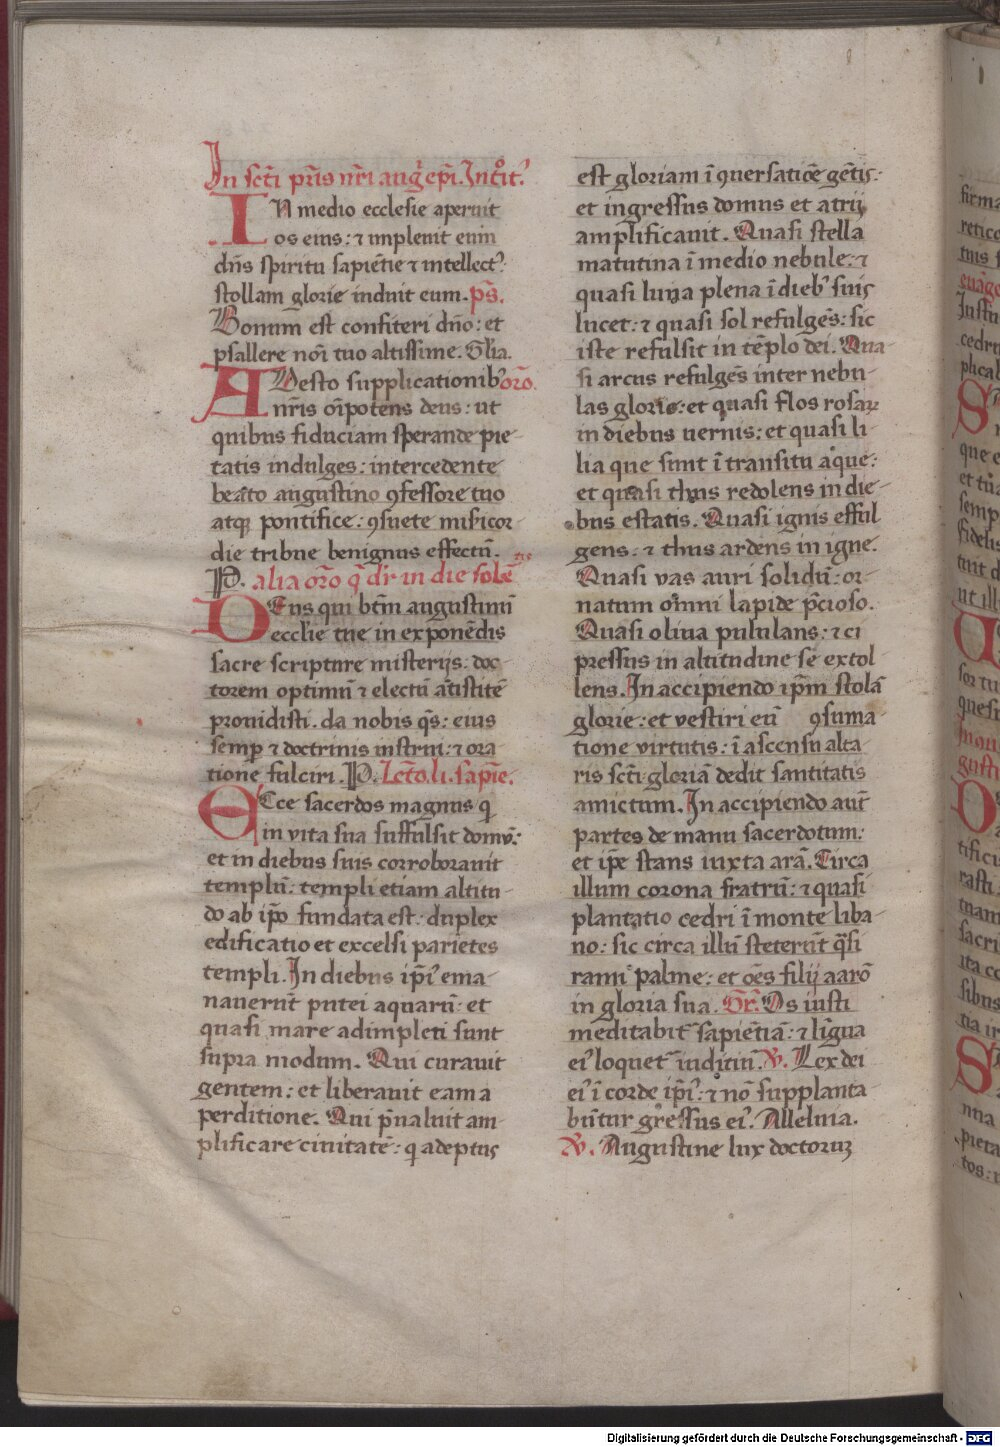 In scti pr̄is nr̄i aug᷒ ep̄i. Introit᷒
IN medio ecclesie aperuit
os eius: ⁊ impleuit eum
dn̄s spiritu sapiētie ⁊ intellect᷒:
stollam glorie induit eum. ps̄.
Bonum est confiteri dn̄o: et
psallere noī tuo altissime. Glia.
ADesto supplicationib᷒ orō.
nr̄is oīpotens deus: ut
quibus fiduciam sperande pie-
tatis indulges: intercedente
beato augustino ꝯfessore tuo
atqꝫ pontifice: ꝯsuete misicor-
die tribue benignus effectū.
P. alia orō q̄ dr̄ in die solē
DEus qui btm̄ augustinū
ecclīe tue in exponēdis
sacre scripture misterijs: doc-
torem optimū ⁊ electū ātistitē
prouidisti. da nobis qs̄: eius
semꝑ ⁊ doctrinis instrui: ⁊ ora-
tione fulciri. P. Lctō. li. sapīe.
ECce sacerdos magnus q
in vita sua suffulsit domū:
et in diebus suis corroborauit
templū: templi etiam altitu-
do ab ip̄o fundata est: duplex
edificatio et excelsi parietes
templi. In diebus ip̄i᷒ ema-
nauerūt putei aquarū: et
quasi mare adimpleti sunt
supra modum. Qui curauit
gentem: et liberauit eam a
perditione. Qui p̄ualuit am-
plificare ciuitatē: q adeptus
est gloriam ī ꝯuersatiōe gētis:
et ingressus domus et atrij
amplificauit. Quasi stella
matutina ī medio nebule: ⁊
quasi luna plena ī dieb᷒ suis
lucet: ⁊ quasi sol refulgēs: sic
iste refulsit in tēplo dei. Qua-
si arcus refulgēs inter nebu-
las glorie: et quasi flos rosaꝝ
in diebus uernis: et quasi li-
lia que sunt ī transitu aque:
et quasi thus redolens in die-
bus estatis. Quasi ignis efful-
gens: ⁊ thus ardens in igne.
Quasi vas auri solidū: or-
natum omni lapide p̄cioso.
Quasi oliua pululans: ⁊ ci
pressus in altitudine se extol
lens. In accipiendo ip̄m stolā
glorie: et vestiri eū ꝯsuma-
tione virtutis: ī ascensu alta-
ris scti gloriā dedit santitatis
amictum. In accipiendo aut̄
partes de manu sacerdotum:
et ip̄e stans iuxta arā. Circa
illum corona fratrū: ⁊ quasi
plantatio cedri ī monte liba-
no: sic circa illū steterūt q̄si
rami palme: et oēs filij aarō
in gloria sua. Gr̄. Os iusti
meditabit᷒ sapiētiā: ⁊ līgua
ei᷒ loquet᷒ iuditiū. V. Lex dei
ei᷒ ī corde ip̄i᷒: ⁊ nō supplanta-
būtur gressus ei᷒. Alleluia.
V. Augustine lux doctorum
Digitalisierung gefördert durch die Deutsche Forschungsgemeinschaft - DFG